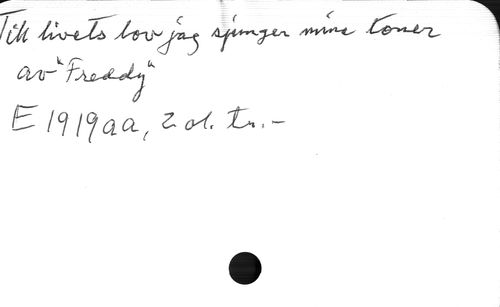 Till livets lov jag sjunger mina toner
av "Freddy"
E 1919aa, 2 d. tr. -